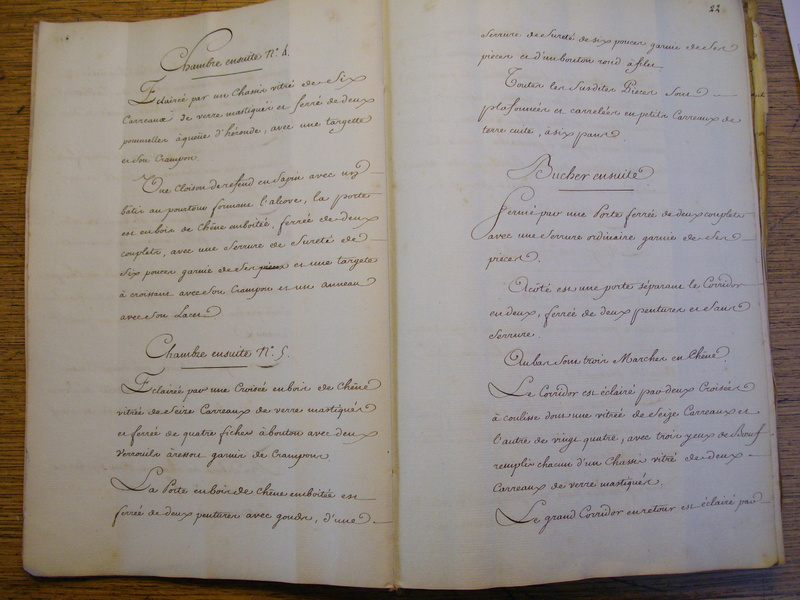 Chambre ensuite N.º 4.
Eclairée par un Chassis vitré de Six
Carreaux de verre mastiqués et ferré de deux
pommelles à queüe d'hironde, avec une targette
et Son Crampon.
Une Cloison de refend en Sapin avec un
bâtis au pourtour formant l'alcove, la porte
est en bois de Chêne emboitée, ferrée de deux
couplets, avec une Serrure de Sureté de
Six pouces garnie de Ses pieces et une targete
à croissant avec Son Crampon et un anneau
avec Son Lacet
Chambre ensuite N.º 5.
Eclairée par une Croisée en bois de Chêne
vitrée de Seize Carreaux de verre mastiqués
et ferrée de quatre fiches à bouton avec deux
Verrouils à ressort garnis de Crampons
La Porte en bois de chêne emboitée est
ferrée de deux pentures avec gonds, d'une
22
Serrure de Sureté de six pouces garnie de Ses
pieces et d'un bouton rond à filet
Toutes les Susdites Pieces Sont
plafonnées et carrelées en petits Carreaux de
terre cuite, à six pans
Bucher ensuite
Fermé par une Porte ferrée de deux couplets
avec une Serrure ordinaire garnie de Ses
pieces.
A côté est une porte séparant le Corridor
en deux, ferrée de deux pentures et Sans
Serrure.
Au bas Sont trois Marches en Chêne
Le Corridor est éclairé par deux Croisées
à coulisse dont une vitrée de Seize Carreaux et
l'autre de vingt quatre, avec trois yeux de Bœuf
remplis chacun d'un Chassis vitré de deux
Carreaux de verre mastiqués.
Le grand Corridor en retour est éclairé par